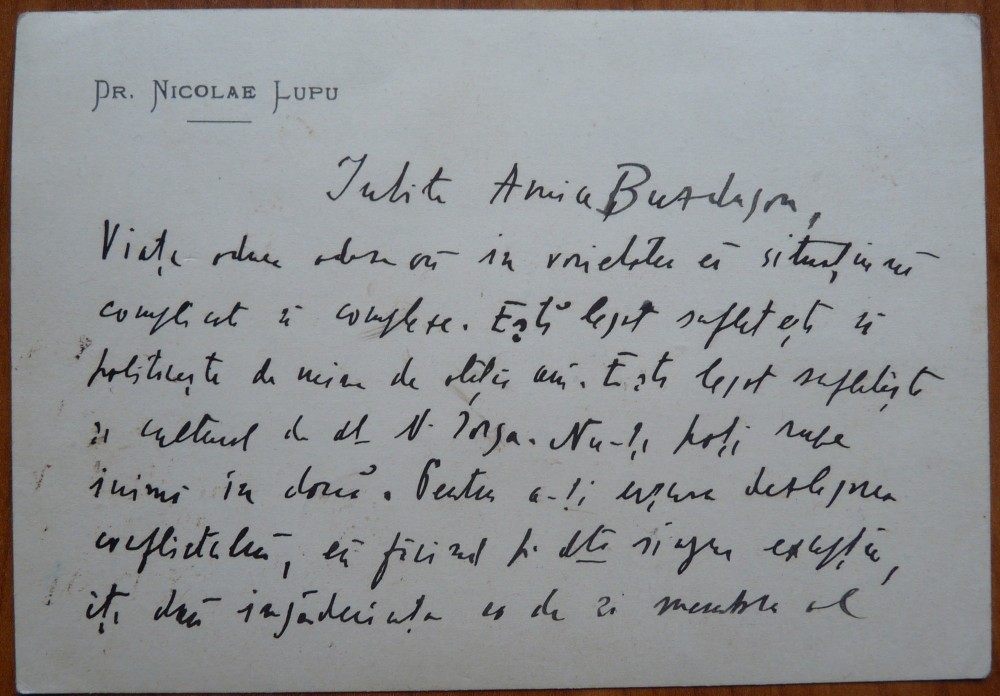 Dr. Nicolae Lupu
Iubite Amice Buzdugan,
Viața aduce adesea ori în varietatea ei situațiuni
complicate și complexe. Ești legat sufletește și
politicește de mine de atâția ani. Ești legat sufletește
și cultural de dl N. Iorga. Nu-ți poți rupe
inima în două. Pentru a-ți ușura deslegarea
conflictului, eu făcând pt. dta singura excepție,
îți dau îngăduința ca să fii membru al